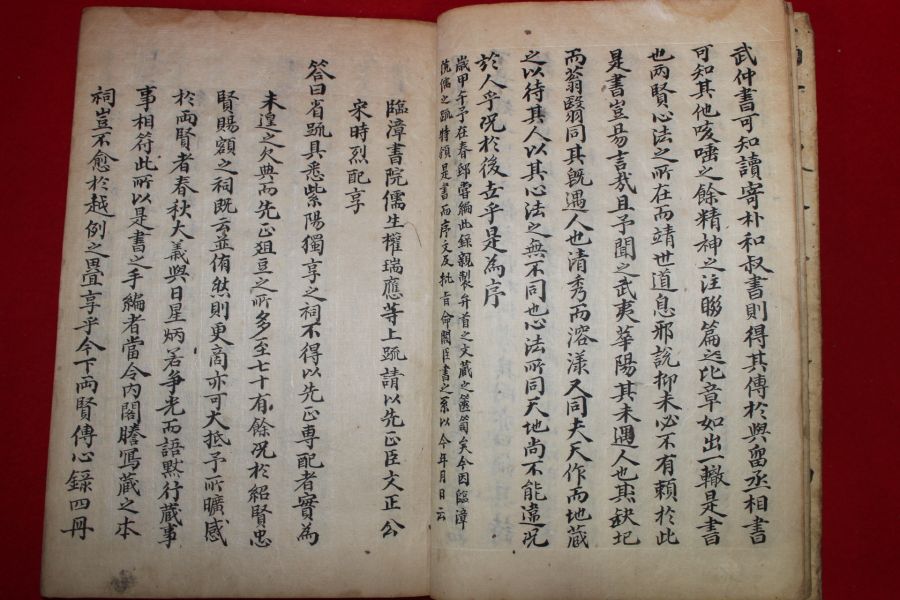 武仲書可知讀寄朴和叔書則得其傳於與畱丞相書
可知其他咳唾之餘精神之注聮篇迭章如出一轍是書
也兩賢心法之所在而靖世道息邪說抑未必不有賴於此
是書豈易言哉且予聞之武夷華陽其未遇人也其缺圮
而蓊翳同其旣遇人也清秀而溶漾又同夫天作而地藏
之以待其人以其心法之無不同也心法所同天地尚不能違況
於人乎況於後世乎是為序
歲甲午予在春邸甞編此錄親製弁首之文藏之篋笥矣今因臨漳
院儒之疏特頒是書而序文及批旨命閣臣書之系以今年月日云
臨漳書院儒生權瑞應等上疏請以先正臣文正公
宋時烈配享
答曰省疏具悉紫陽獨享之祠不得以先正專配者實為
未遑之欠典而先正俎豆之所多至七十有餘況於紹賢忠
賢賜額之祠既云並侑然則更商亦可大抵予所曠感
於兩賢者春秋大義與日星炳若爭光而語默行藏事
事相符此所以是書之手編者當今內閣謄寫藏之本
祠豈不愈於越例之疊享乎今下兩賢傳心錄四冊